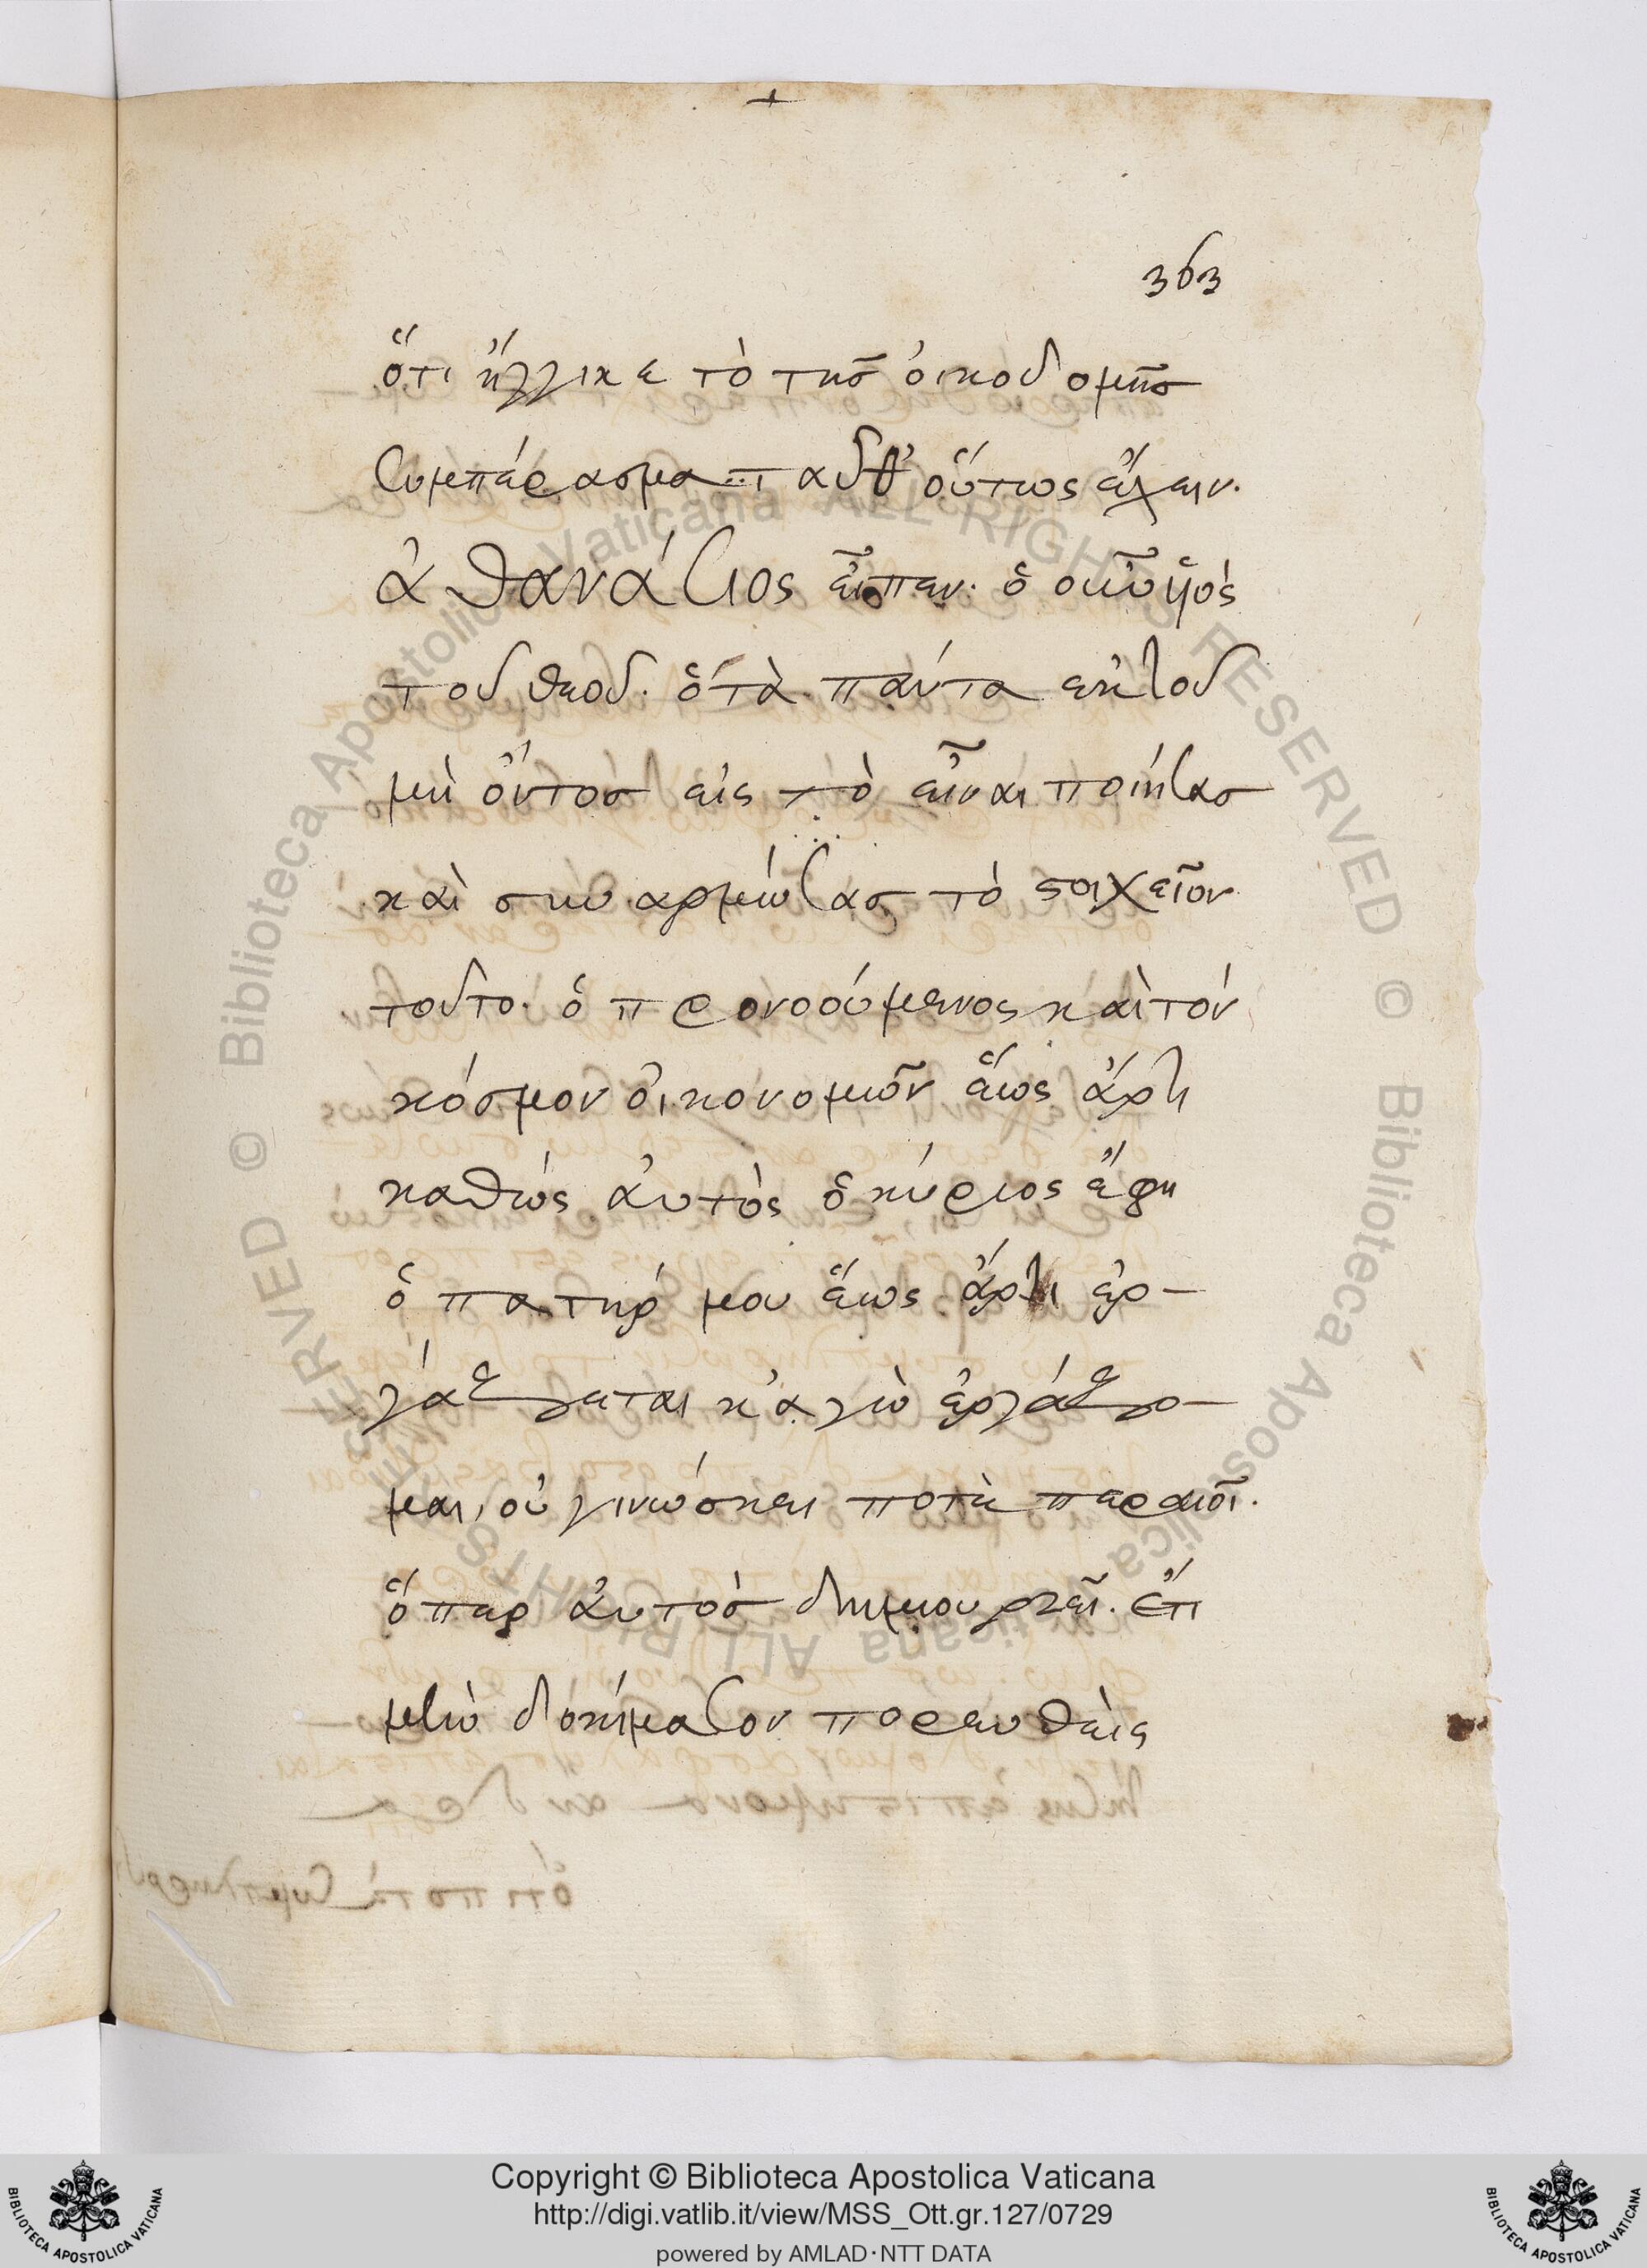 363
ὅτι ἤγγικε τὸ τῆς ὀικοδομῆς
συμπέρασμα ταῦθ' οὕτως ἔχειν.
ἀθανάσιος εἶπεν. ὁ θεοῦ ὑϊὸς
τοῦ θεοῦ. ὁ τὰ πάντα ἐκ τοῦ
μὴ ὄντος εἰς τὸ εἶναι ποιήσας
καὶ συναρμώσας τὸ στοιχεῖον
τοῦτο. ὁ προνοούμενος καὶ τὸν
κόσμον ὀικονομῶν ἕως ἄρτι
καθὼς ἀυτὸς ὁ κύριος ἔφη
ὁ πατήρ μου ἕως ἄρτι ἐρ-
γάζεται κἀγὼ ἐργάζο-
μαι, οὐ γινώσκει ποτὲ
ὅπερ ἀυτὸς δημιουργεῖ. ἔτι
δοκίμασον πορευθεὶς
Copyright © Biblioteca Apostolica Vaticana
http://digi.vatlib.it/view/MSS_Ott.gr.127/0729
powered by AMLAD·NTT DATA
BIBLIOTECA APOSTOLICA VATICANA
BIBLIOTECA APOSTOLICA VATICANA